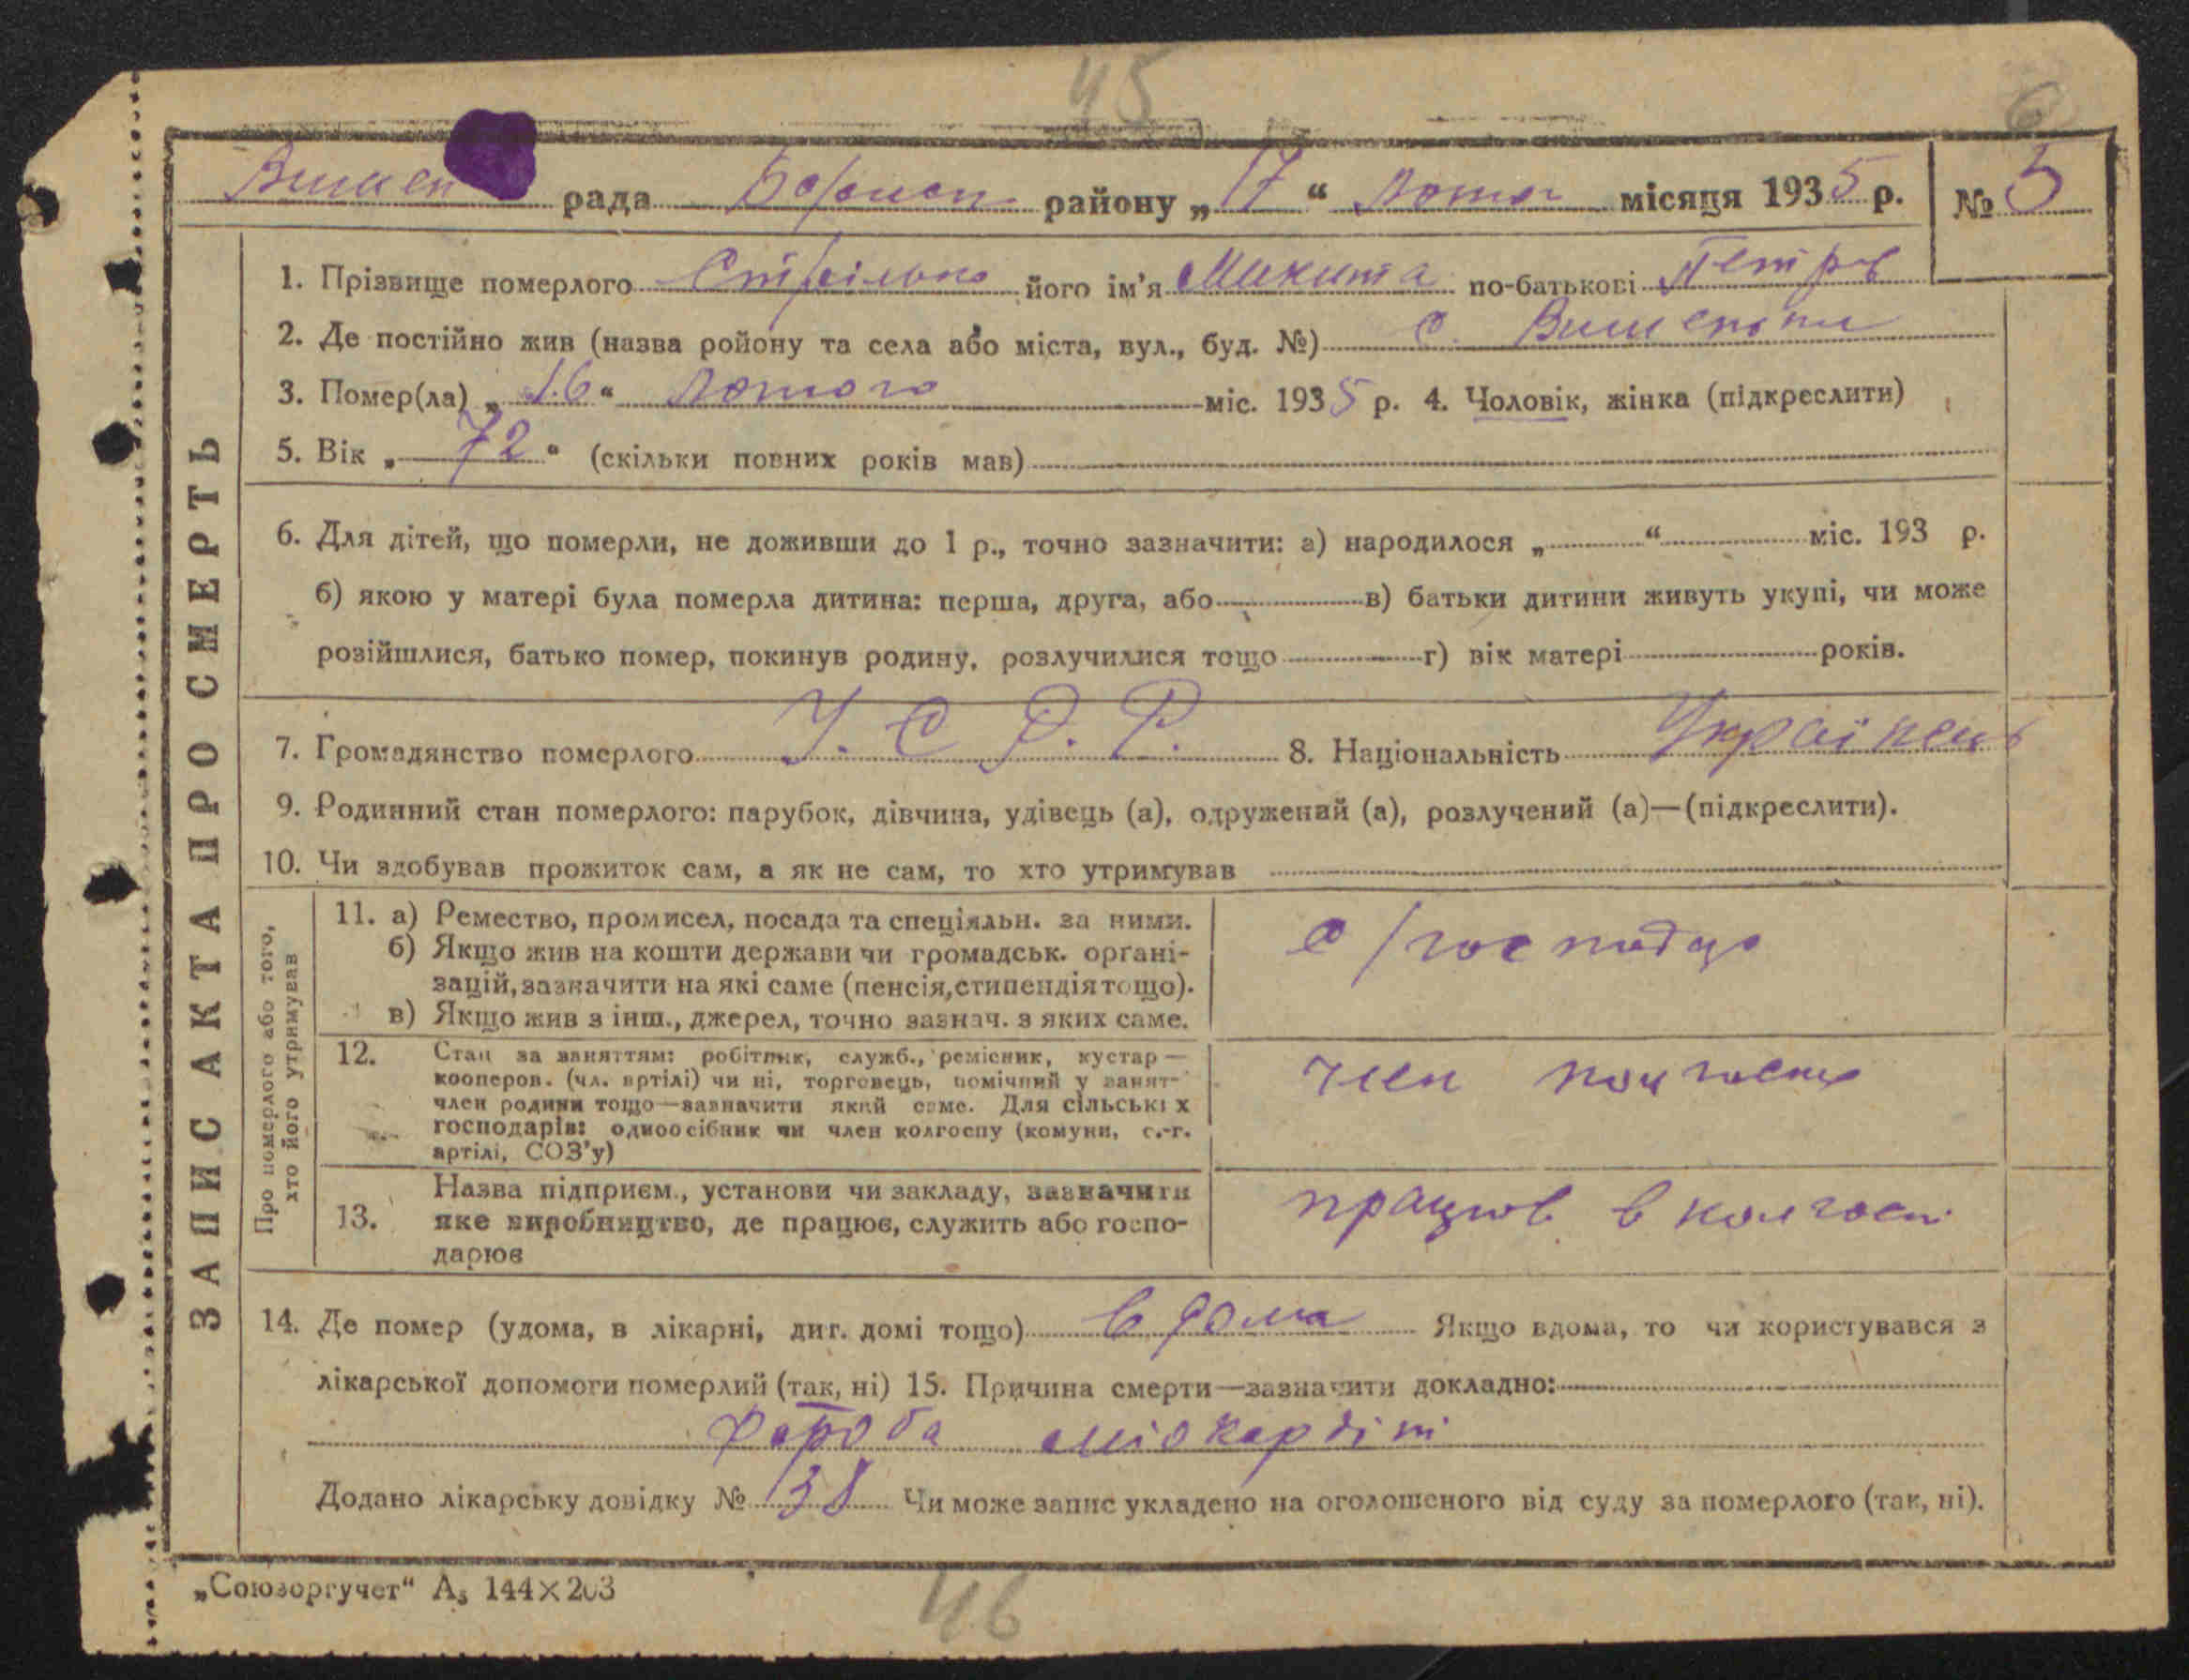 45
6
Вишен рада Борисп району „17“ Лютог місяця 1935 р. № 5
1. Прізвище померлого Стрілько його ім'я Микита по-батькові Петров
2. Де постійно жив (назва ройону та села або міста, вул., буд. №) с.
3. Помер(ла) „16“ Лютого міс. 1935 р. 4. Чоловік, жінка (підкреслити)
5. Вік „72“ (скільки повних років мав)
6. Для дітей, що померли, не доживши до 1 р., точно зазначити: а) народилося „ “ міс. 193 р.
б) якою у матері була померла дитина: перша, друга, або в) батьки дитини живуть укупі, чи може
розійшлися, батько помер, покинув родину, розлучилися тощо г) вік матері років.
7. Громадянство померлого У. С Р. Р. 8. Національність Українець
9. Родинний стан померлого: парубок, дівчина, удівець (а), одружений (а), розлучений (а)—(підкреслити).
10. Чи здобував прожиток сам, а як не сам, то хто утримував
ЗАПИС АКТА ПРО СМЕРТЬ
Про померлого або того,
хто його утримував
11. а) Ремество, промисел, посада та спеціяльн. за ними.
б) Якщо жив на кошти держави чи громадськ. органі-
зацій, зазначити на які саме (пенсія, стипендія тощо).
в) Якщо жив з інш., джерел, точно зазнач. з яких саме.
с/господар
12. Стан за заняттям: робітник, служб., ремісник, кустар —
кооперов. (чл. артілі) чи ні, торговець, помічний у занят-
член родини тощо—зазначити який саме. Для сільських
господарів: одноосібник чи член колгоспу (комуни, с.-г.
артілі, СОЗ'у)
член колгоспу
13. Назва підприєм., установи чи закладу, зазначити
яке виробництво, де працює, служить або госпо-
дарює
працюв в колгосп
14. Де помер (удома, в лікарні, диг. домі тощо) в дома Якщо вдома, то чи користувався з
лікарської допомоги померлий (так, ні) 15. Причина смерти—зазначити докладно:
Хороба міокардіт
Додано лікарську довідку № 38 Чи може запис укладено на оголошеного від суду за померлого (так, ні).
„Союзоргучет“ А₅ 144×203
46